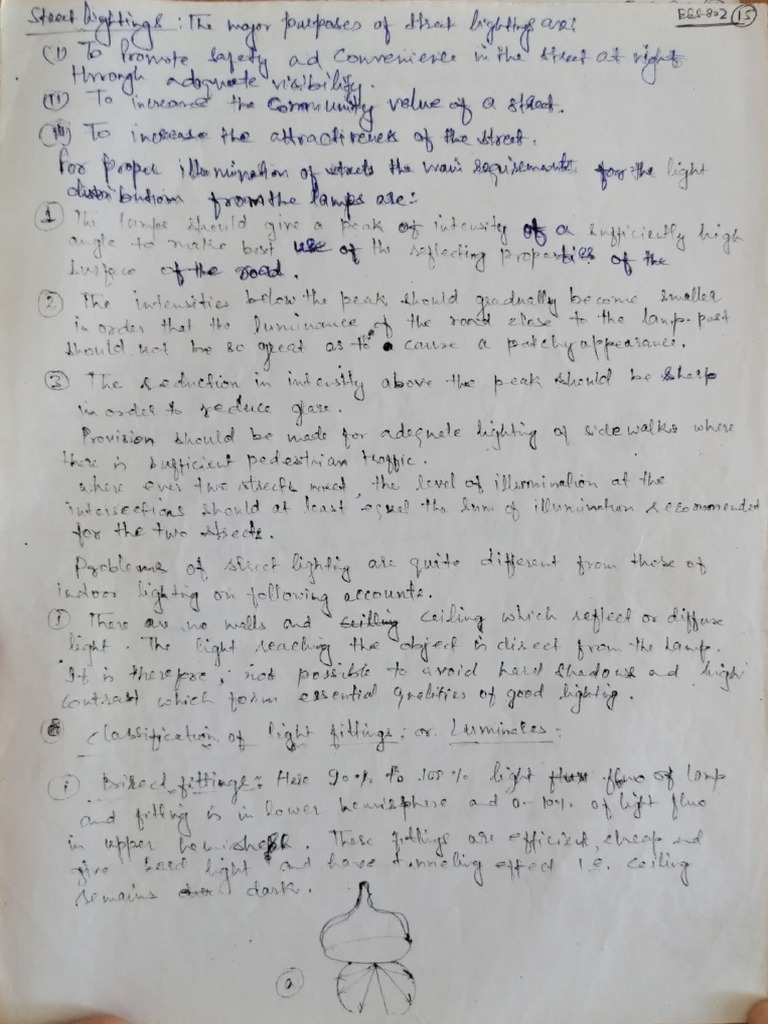 EES-802 (15)
Street Lightings: The major purposes of street lighting are:
(i) To Promote safety ad Convenience in the street at night
through adequate visibility.
(ii) To increase the Community value of a street.
(iii) To increase the attractiveness of the street.
For proper illumination of streets the main requirements for the light
distribution from the lamps are:
① The lamps should give a peak of intensity of a sufficiently high
angle to make best use of the reflecting properties of the
surface of the road.
② The intensities below the peak should gradually become smaller
in order that the luminance of the road close to the lamp-post
should not be so great as to cause a patchy appearance.
③ The reduction in intensity above the peak should be sharp
in order to reduce glare.
Provision should be made for adequate lighting of side walks where
there is sufficient pedestrian traffic.
where ever two streets meet, the level of illumination at the
intersections should at least equal the sum of illumination recommended
for the two streets.
Problems of street lighting are quite different from those of
indoor lighting on following accounts.
① There are no walls and ceiling which reflect or diffuse
light. The light reaching the object is direct from the lamp.
It is therefore, not possible to avoid hard shadows and high
contrast which form essential qualities of good lighting.
Classification of light fittings: or Luminaires:
(i) Direct fittings: Here 90% to 100% light flux of lamp
and fitting is in lower hemisphere and 0-10% of light flux
in upper hemisphere. These fittings are efficient, cheap and
give hard light and have tunneling effect i.e. ceiling
remains dark.
(a)